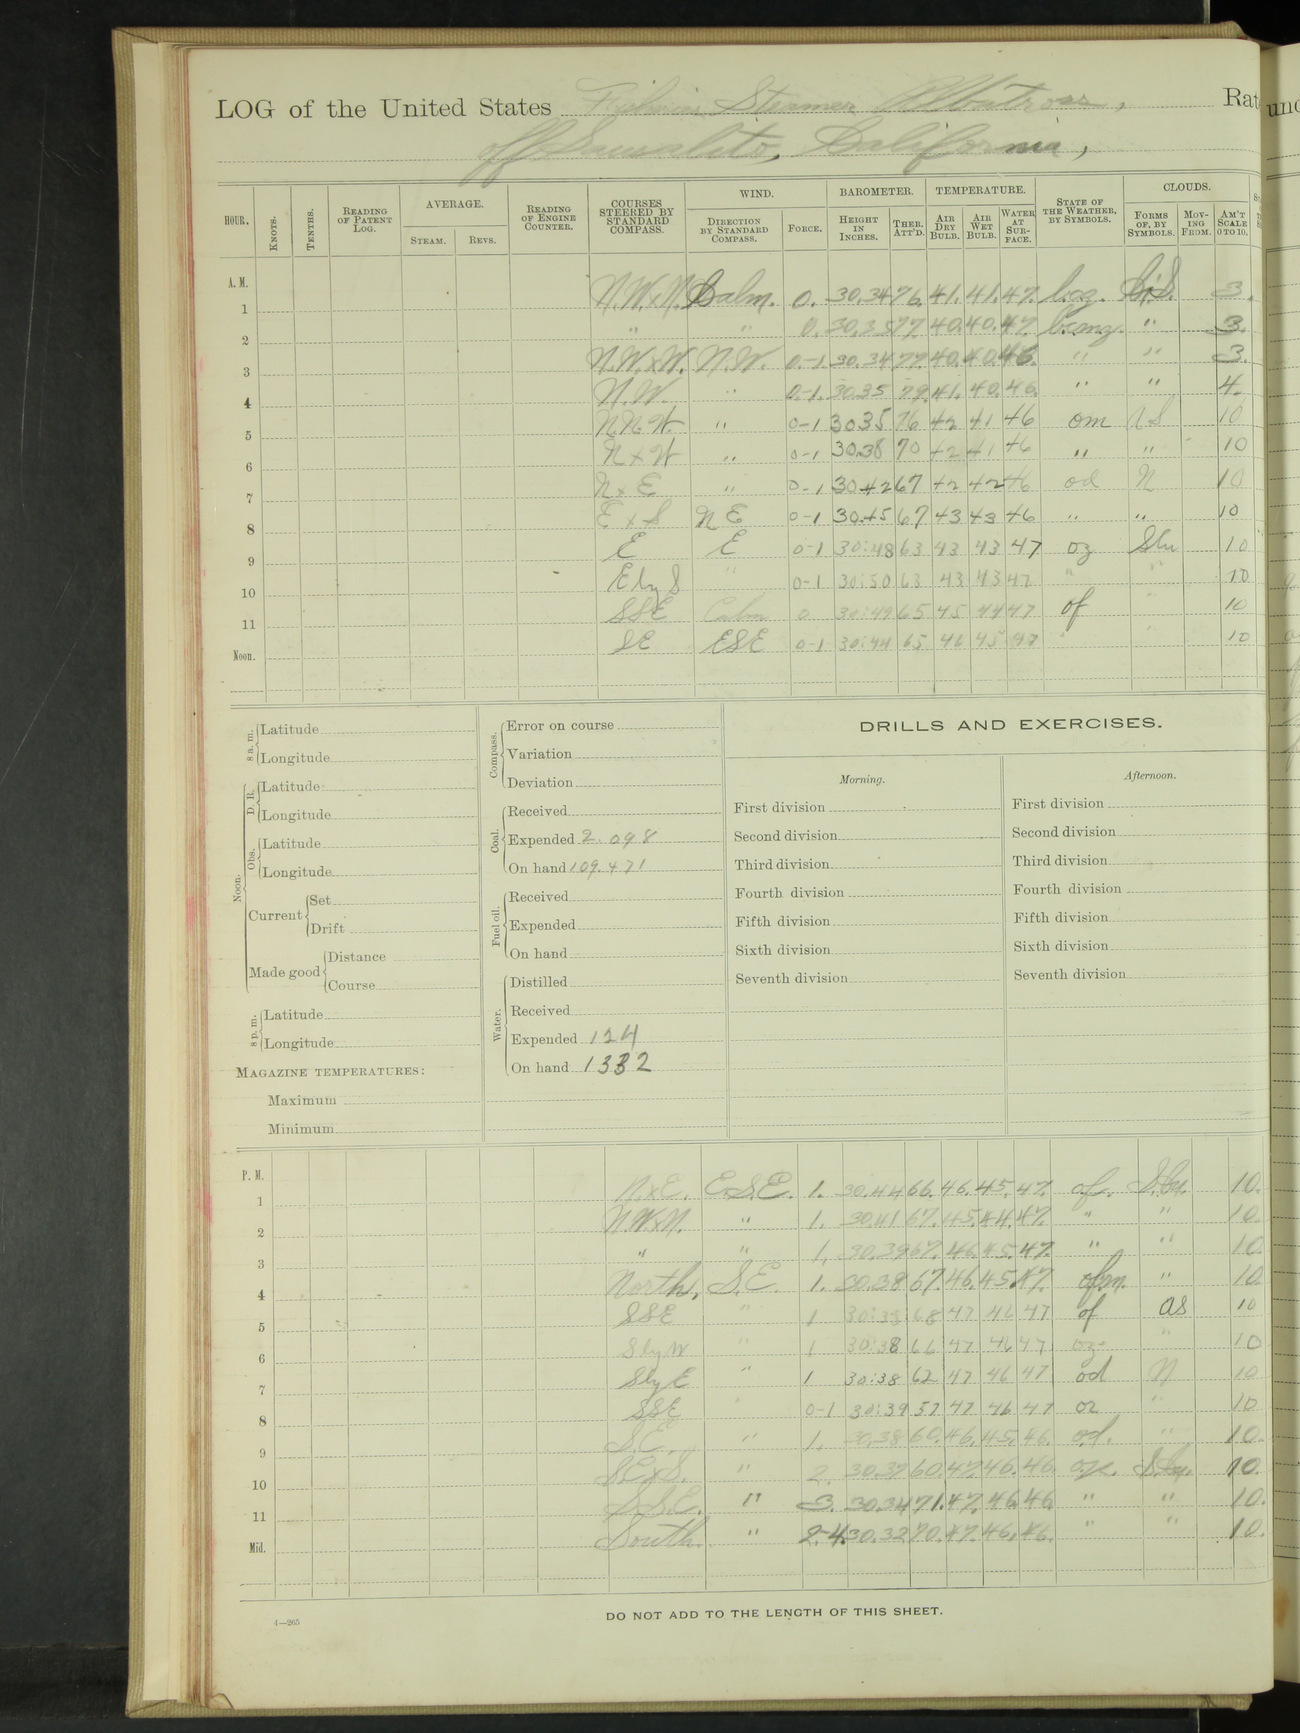 LOG of the United States Fisheries Steamer Albatross, Rat
off Sausalito, California,
HOUR. KNOTS. TENTHS. READING OF PATENT LOG. AVERAGE. STEAM. REVS. READING OF ENGINE COUNTER. COURSES STEERED BY STANDARD COMPASS. WIND. DIRECTION BY STANDARD COMPASS. FORCE. BAROMETER. HEIGHT IN INCHES. THER. ATT'D. TEMPERATURE. AIR DRY BULB. AIR WET BULB. WATER AT SURFACE. STATE OF THE WEATHER, BY SYMBOLS. CLOUDS. FORMS OF, BY SYMBOLS. MOVING FROM. AM'T SCALE 0 TO 10.
A. M.
1 N.W.xN. Calm. 0. 30.34 76. 41. 41. 47. 3.
2 " " 0. 30.35 77. 40. 40. 47. " 3.
3 N.W.xW. N.W. 0-1. 30.34 77. 40. 40. 46. " " 3.
4 N.W. " 0-1. 30.35 79. 41. 40. 46. " " 4.
5 N.N.W. " 0-1 30.35 76 42 41 46 om 10
6 N x W " 0-1 30.38 70 42 41 46 " " 10
7 N x E " 0-1 30.42 67 42 42 46 od N 10
8 E x S N E 0-1 30.45 67 43 43 46 " " 10
9 E E 0-1 30:48 63 43 43 47 oz Scu 10
10 E by S " 0-1 30:50 63 43 43 47 " " 10
11 SSE Calm 0 30:49 65 45 44 47 of " 10
Noon. SE ESE 0-1 30:44 65 46 45 47 " " 10
8 a. m. Latitude
Longitude
Noon. D. R. Latitude
Longitude
Obs. Latitude
Longitude
Current Set
Drift
Made good Distance
Course
8 p. m. Latitude
Longitude
MAGAZINE TEMPERATURES:
Maximum
Minimum
Compass. Error on course
Variation
Deviation
Coal. Received
Expended 2.098
On hand 109.471
Fuel oil. Received
Expended
On hand
Water. Distilled
Received
Expended 124
On hand 1332
DRILLS AND EXERCISES.
Morning. Afternoon.
First division First division
Second division Second division
Third division Third division
Fourth division Fourth division
Fifth division Fifth division
Sixth division Sixth division
Seventh division Seventh division
P. M.
1 N.xE. E.S.E. 1. 30.44 66. 46. 45. 47. of. S.cu. 10.
2 N.W.xN. " 1. 30.41 67. 45. 44. 47. " " 10.
3 " " 1. 30.39 67. 46. 45. 47. " " 10.
4 North, S.E. 1. 30.38 67. 46. 45. 47. ofm. " 10
5 SSE " 1 30:38 68 47 46 47 of as 10
6 S by W " 1 30:38 66 47 46 47 oz " 10
7 S by E " 1 30:38 62 47 46 47 od N 10
8 SSE " 0-1 30:39 57 47 46 47 oz " 10
9 S.E. " 1. 30.38 60. 46. 45. 46. od. " 10.
10 S.E.xS. " 2. 30.37 60. 47. 46. 46. oz. S.cu. 10.
11 S.S.E. " 3. 30.34 71. 47. 46. 46. " " 10.
Mid. South. " 2-4. 30.32 70. 47. 46. 46. " " 10.
4—265
DO NOT ADD TO THE LENGTH OF THIS SHEET.